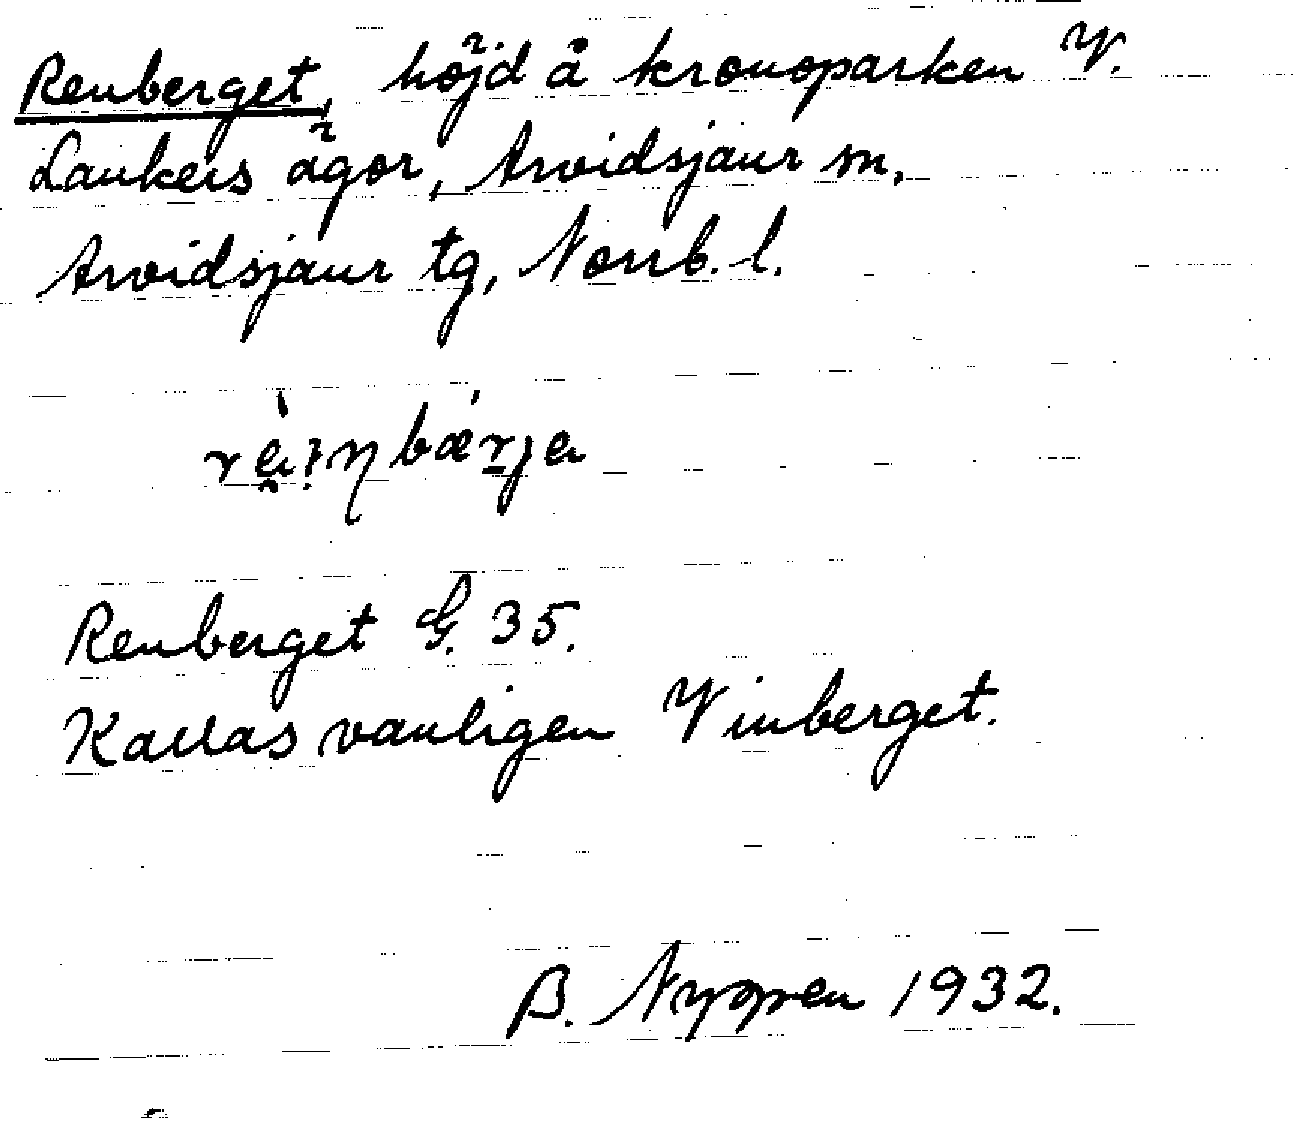 Renberget, höjd å kronoparken V.
Laukers ägor, Arvidsjaur sn,
Arvidsjaur tg, Norrb. l.
Renberget G. 35.
Kallas vanligen Vinberget.
B. Nygren 1932.